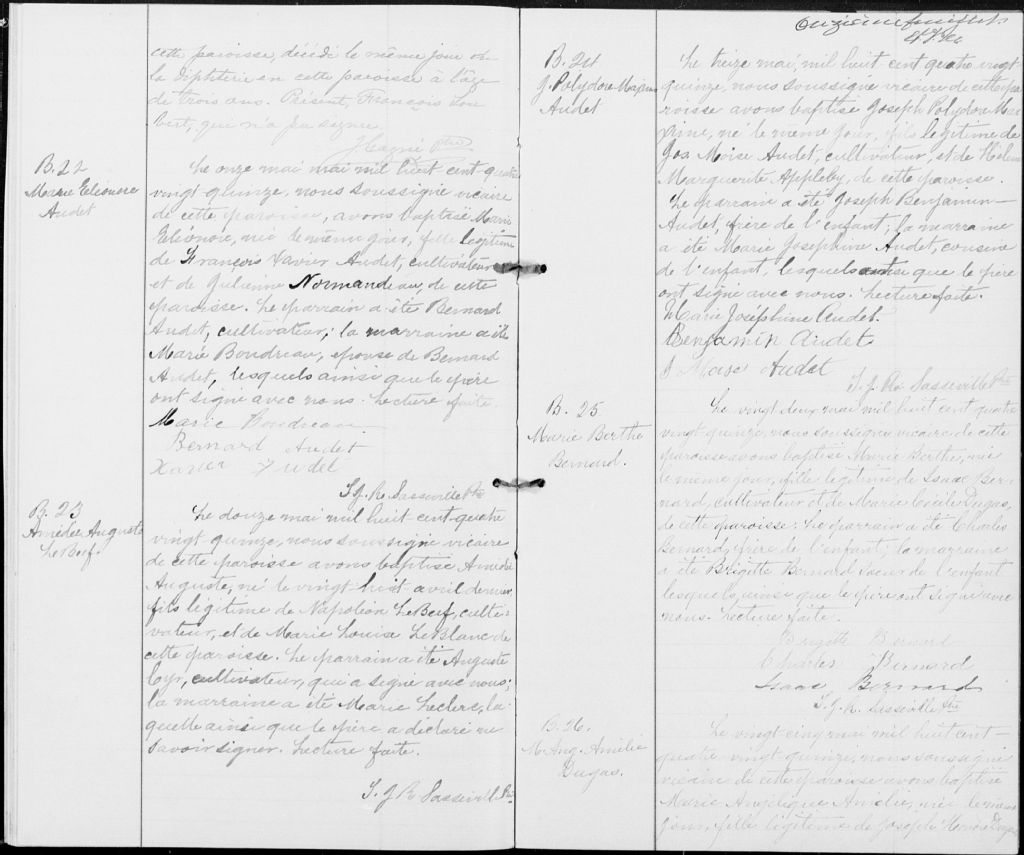 cette paroisse, décédé le même jour de
la diphterie en cette paroisse à l'âge
de trois ans. Présent, François Lou
bert, qui n'a pu signer.
J Gagné Ptre
B. 22
Marie Eléonore
Audet
Le onze mai mil huit cent quatre
vingt quinze, nous soussigné vicaire
de cette paroisse, avons baptisé Marie
Eléonore, née le même jour, fille légitime
de François Xavier Audet, cultivateur
et de Julienne Normandeau, de cette
paroisse. Le parrain a été Bernard
Audet, cultivateur; la marraine a été
Marie Boudreau, épouse de Bernard
Audet, lesquels ainsi que le père
ont signé avec nous. Lecture faite.
Marie Boudreau
Bernard Audet
Xavier Audet
S. J. R. Sasseville Ptre
B. 23
Amédée Auguste
LeBeuf
Le douze mai mil huit cent quatre
vingt quinze, nous soussigné vicaire
de cette paroisse avons baptisé Amédée
Auguste, né le vingt-huit avril dernier
fils légitime de Napoléon LeBeuf, culti-
vateur, et de Marie Louise LeBlanc de
cette paroisse. Le parrain a été Auguste
Cyr, cultivateur, qui a signé avec nous;
la marraine a été Marie Leclerc, la
quelle ainsi que le père a déclaré ne
savoir signer. Lecture faite.
S. J. R. Sasseville Ptre
Onzième feuillet
B. 24
J. Polydore Maxime
Audet
Le treize mai, mil huit cent quatre vingt
quinze, nous soussigné vicaire de cette pa
roisse avons baptisé Joseph Polydore Ma
xime, né le même jour, fils légitime de
Jos. Moise Audet, cultivateur, et de Hélène
Marguerite Appleby, de cette paroisse.
Le parrain a été Joseph Benjamin
Audet, frère de l'enfant; la marraine
a été Marie Josephine Audet, cousine
de l'enfant, lesquels ainsi que le père
ont signé avec nous. Lecture faite.
Marie Joséphine Audet.
Benjamin Audet
J Moise Audet
S. J. R. Sasseville Ptre
B. 25
Marie Berthe
Bernard.
Le vingt deux mai mil huit cent quatre
vingt quinze, nous soussigné vicaire de cette
paroisse avons baptisé Marie Berthe, née
le même jour, fille légitime de Isaac Ber-
nard, cultivateur et de Marie Cécile Dugas,
de cette paroisse. Le parrain a été Charles
Bernard, frère de l'enfant; la marraine
a été Brigitte Bernard soeur de l'enfant
lesquels, ainsi que le père, ont signé avec
nous. Lecture faite.
Brigitte Bernard
Charles Bernard
Isaac Bernard
S. J. R. Sasseville Ptre
B. 26.
M. Ang. Amélie
Dugas.
Le vingt cinq mai mil huit cent
quatre-vingt-quinze, nous soussigné
vicaire de cette paroisse avons baptisé
Marie Angélique Amélie, née le même
jour, fille légitime de Joseph Dugas